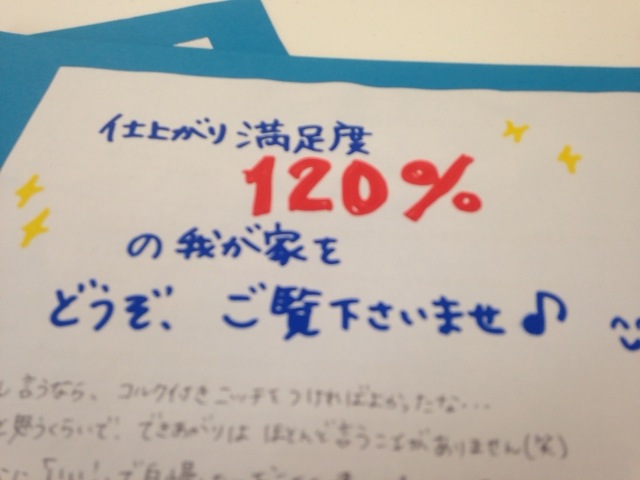 仕上がり満足度
120%
の我が家を
どうぞ、ご覧下さいませ♪
言うなら、コルク付きニッチをつければよかったな…
と思うくらいで、できあがりは ほとんど言うことがありません(笑)